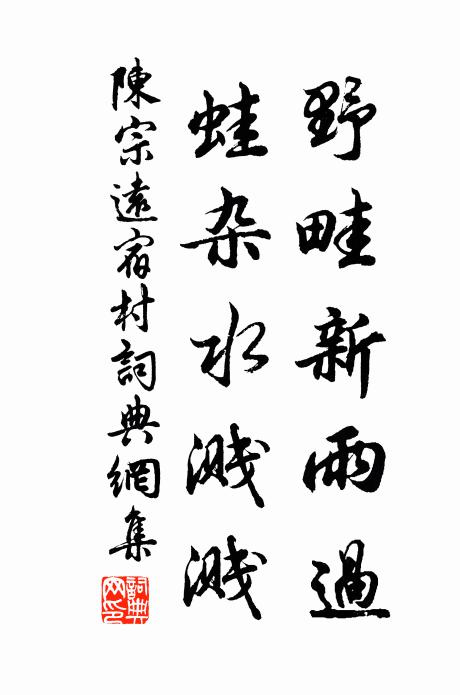 野畦新雨過
蛙杂水濺濺
陳宗遠宿村詞典網集
詞典网印